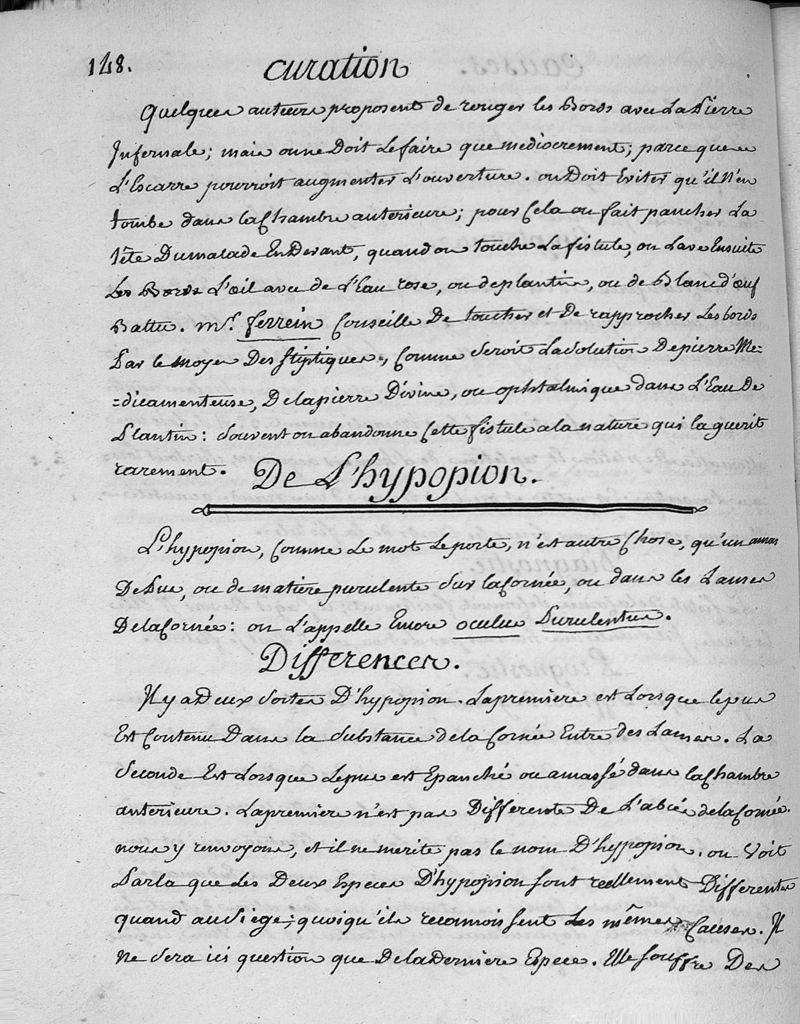 148.
Curation
Quelques auteurs proposent de ronger les Bords avec La Pierre
Infernale; mais on ne Doit Le faire que mediocrement; parce que
L'Escarre pourroit augmenter L'ouverture. on Doit Eviter qu'il n'en
tombe dans la Chambre anterieure; pour Cela on fait pancher La
tête Du malade En Devant, quand on touche La fistule, on Lave Ensuite
Les Bords L'œil avec de L'Eau rose, ou de plantin, ou de Blanc d'œuf
Battu. Mr. ferrein Conseille De toucher et De rapprocher Les bords
Par le moyen Des stiptiques, Comme Seroit La Solution De pierre Me=
=dicamenteuse, De la pierre Divine, ou ophtalmique dans L'Eau De
Plantin: Souvent on abandonne Cette fistule a la nature qui la guerit
rarement.
De L'hypopion.
L'hypopion, Comme Le mot Le porte, n'est autre Chose, qu'un amas
De Pus, ou de matiere purulente Sur la Cornée, ou dans les Lames
De la Cornée: on L'appelle Encore oculus Purulentus.
Differences.
Il y a Deux Sortes D'hypopion. La premiere est Lorsque le pus
Est Contenu Dans la Substance de la Cornée Entre des Lames. La
Seconde Est Lorsque Le pus est Epanché ou amassé dans la Chambre
anterieure. La premiere n'est pas Differente De L'abcés de la Cornée.
nous y renvoyons, et il ne merite pas le nom D'hypopion. on Voit
Par la que Les Deux Especes D'hypopion sont reellement Differentes
quand au Siege; quoiqu'ils reconnoissent Les mêmes Causes. Il
ne Sera ici question que De la Derniere Espece. Elle souffre Des